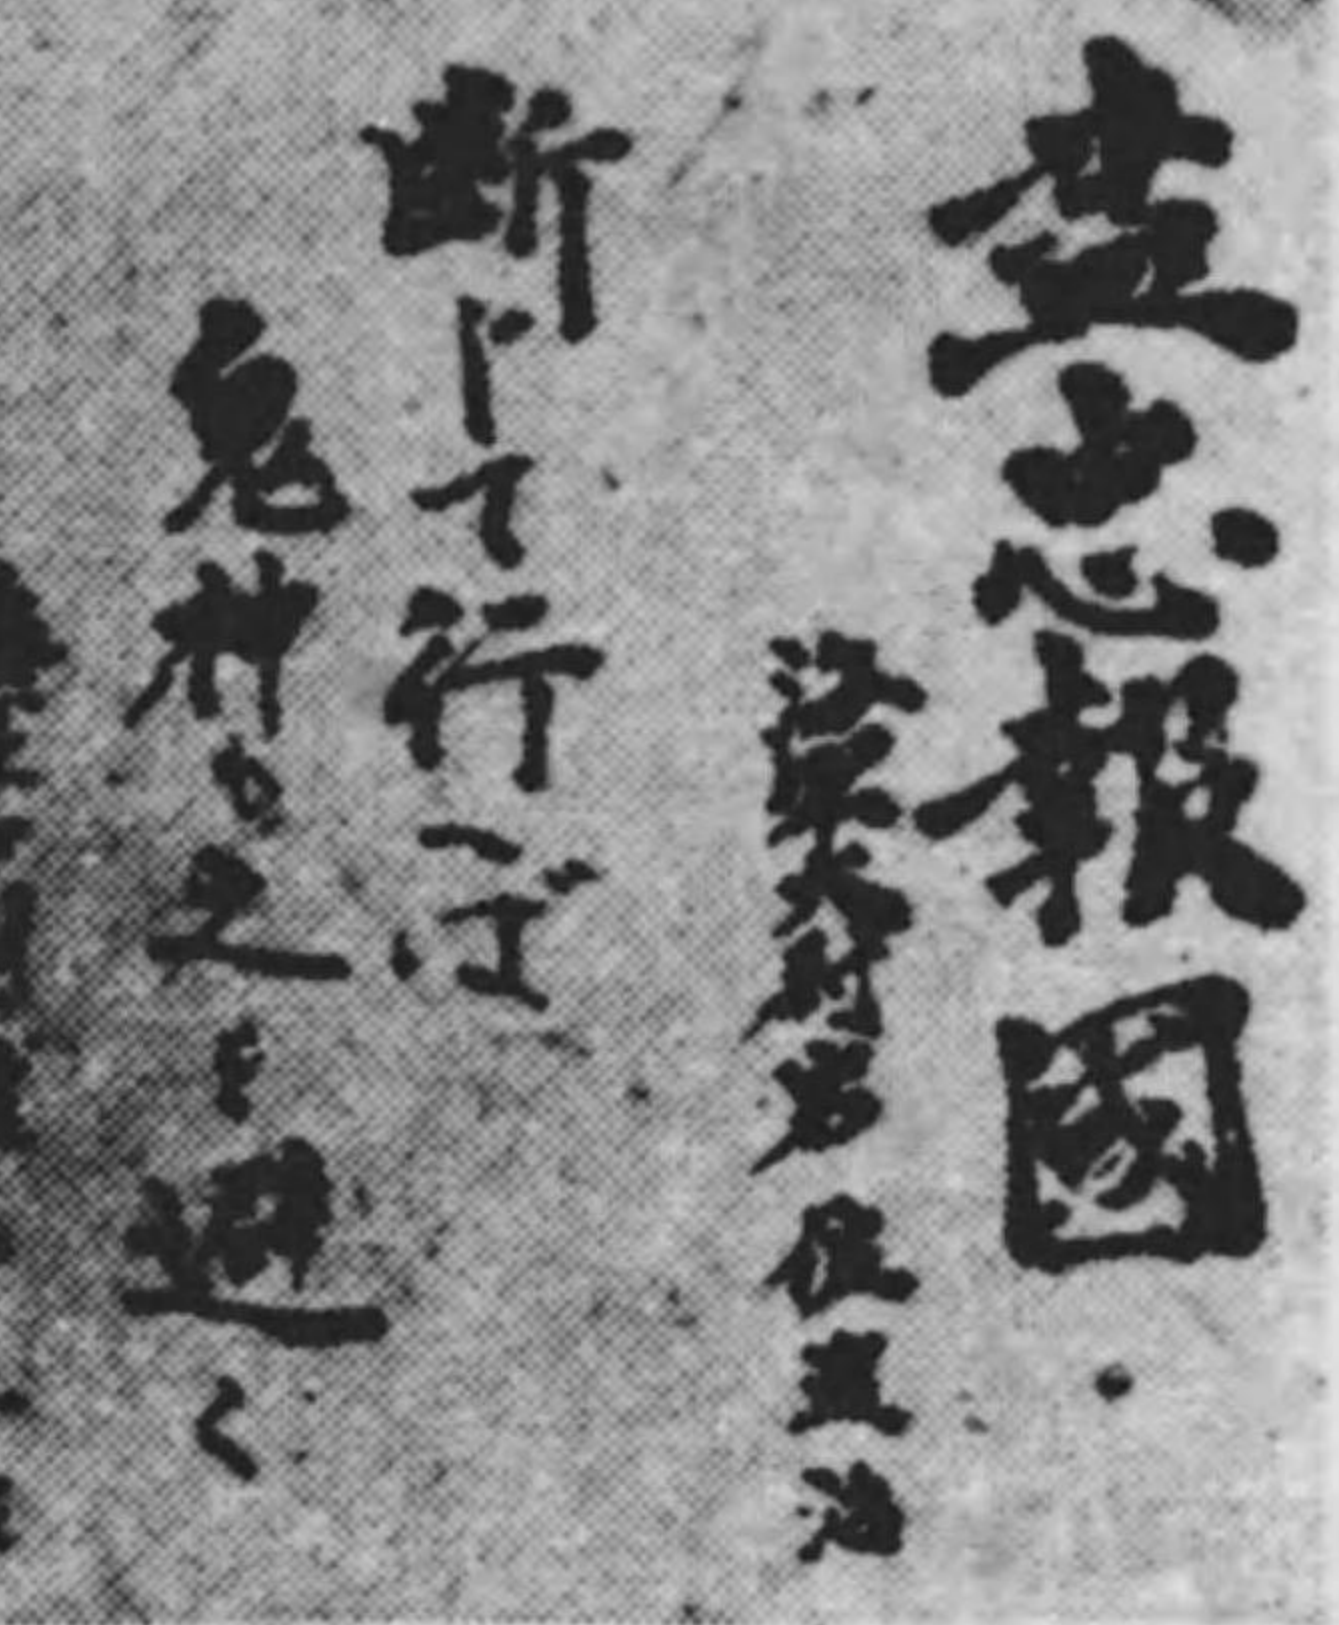 盡忠報國
海軍大尉岩佐直治
断じて行へば
鬼神も之を避く